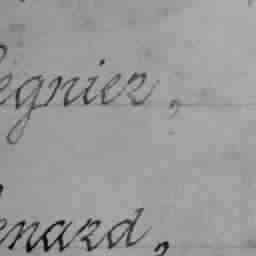 egnier,
enard,